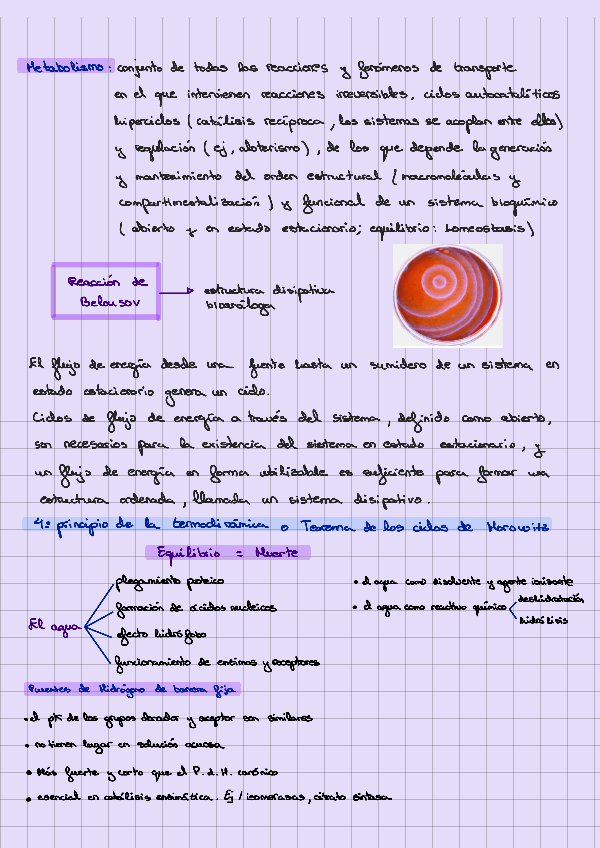 Metabolismo: conjunto de todas las reacciones y fenómenos de transporte
en el que intervienen reacciones irreversibles, ciclos autocatalíticos
hiperciclos (catálisis recíproca, los sistemas se acoplan entre ellos)
y regulación (ej, alosterismo), de los que depende la generación
y mantenimiento del orden estructural (macromoléculas y
compartimentalización) y funcional de un sistema bioquímico
(abierto y en estado estacionario; equilibrio: homeostasis)
Reacción de
Belousov
estructura disipativa
bioanáloga
El flujo de energía desde una fuente hasta un sumidero de un sistema en
estado estacionario genera un ciclo.
Ciclos de flujo de energía a través del sistema, definido como abierto,
son necesarios para la existencia del sistema en estado estacionario, y
un flujo de energía en forma utilizable es suficiente para formar una
estructura ordenada, llamada un sistema disipativo.
4º principio de la termodinámica o Teorema de los ciclos de Morowitz
Equilibrio = Muerte
El agua
plegamiento proteico
formación de ácidos nucleicos
efecto hidrófobo
funcionamiento de enzimas y receptores
• el agua como disolvente y agente ionizante
• el agua como reactivo químico
deshidratación
hidrólisis
Puentes de Hidrógeno de barrera fija
• el pK de los grupos donador y aceptor son similares
• no tienen lugar en solución acuosa
• Más fuerte y corto que el P. d. H. canónico
• esencial en catálisis enzimática. Ej / isomerasas, citrato sintasa